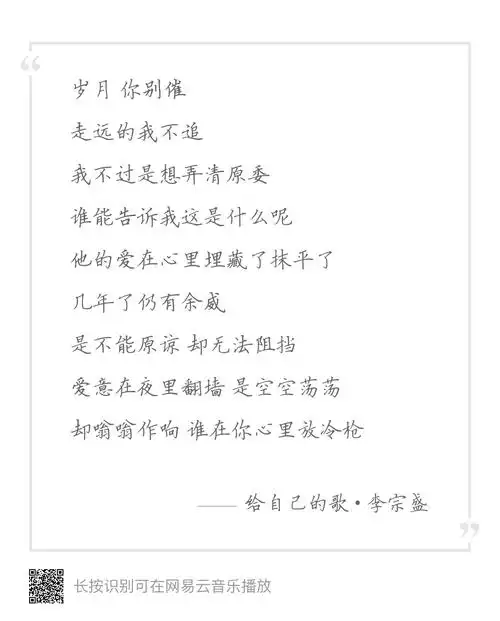 岁月 你别催
走远的我不追
我不过是想弄清原委
谁能告诉我这是什么呢
他的爱在心里埋藏了抹平了
几年了仍有余威
是不能原谅 却无法阻挡
爱意在夜里翻墙 是空空荡荡
却嗡嗡作响 谁在你心里放冷枪
—— 给自己的歌·李宗盛
长按识别可在网易云音乐播放